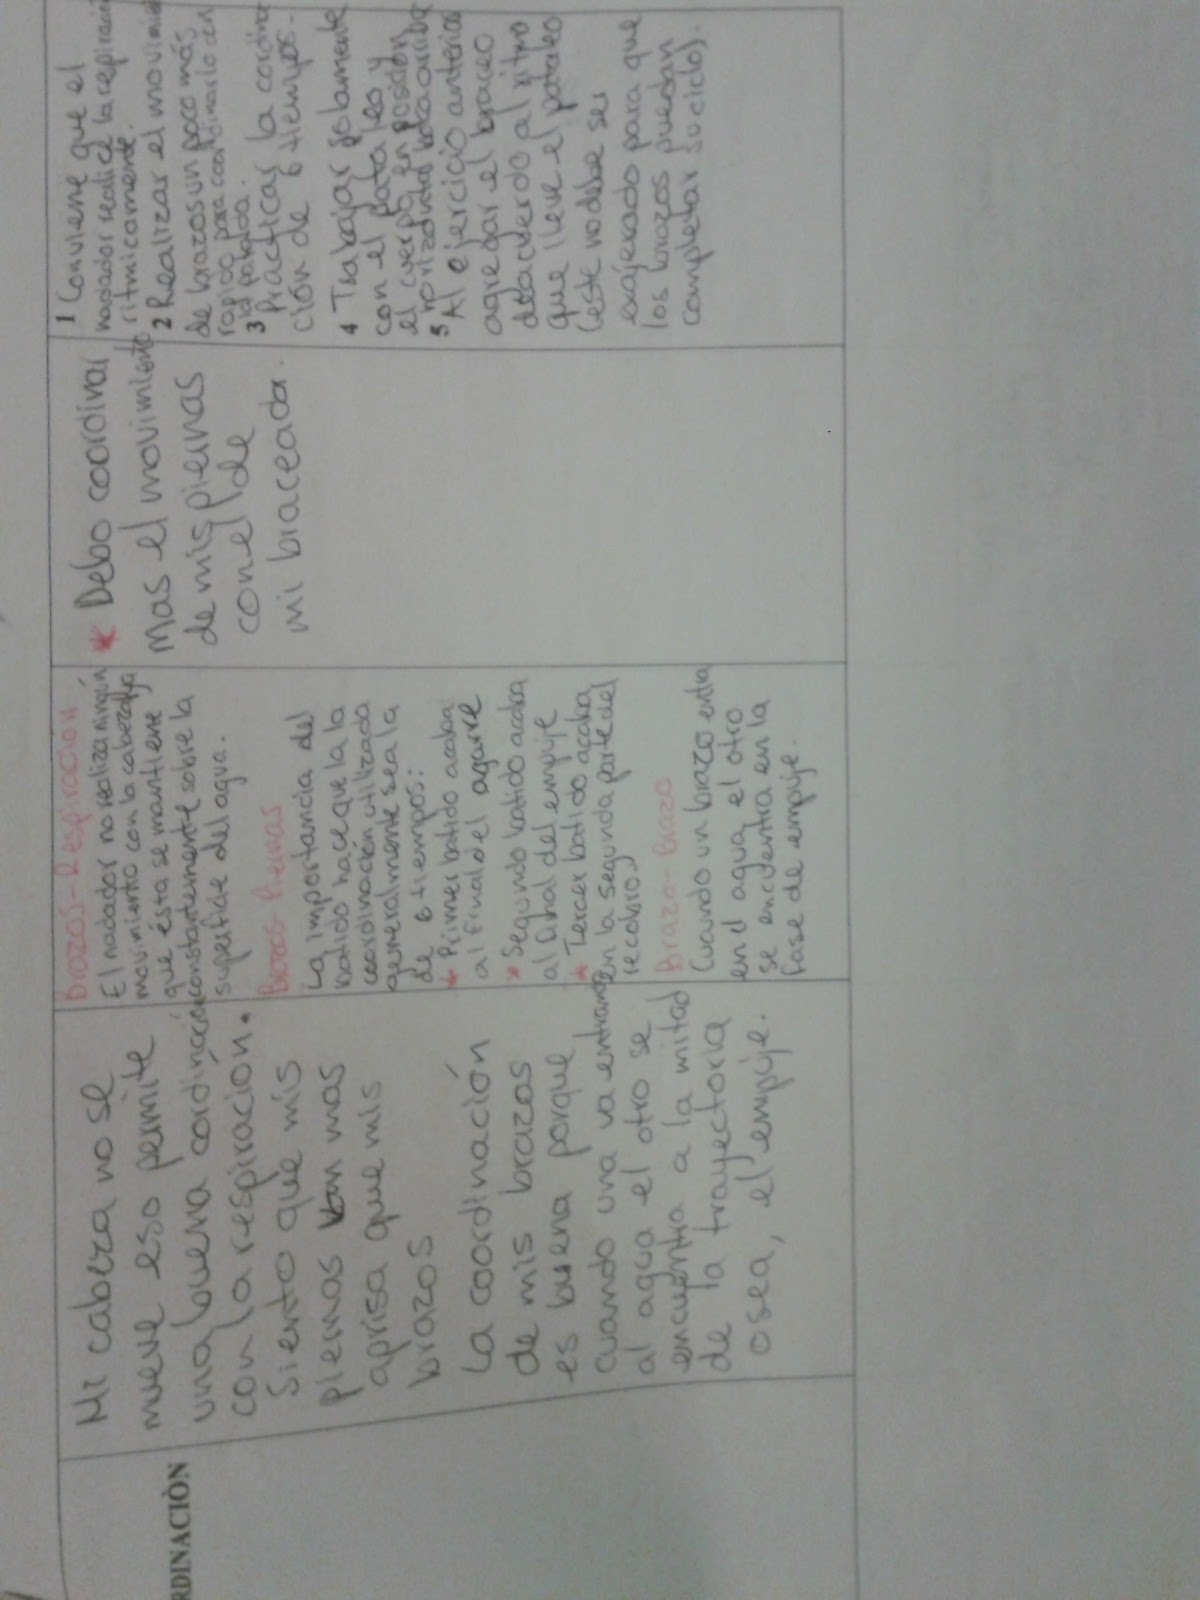 RDINACIÒN
Mi cabeza no se
mueve eso permite
una buena cordinación
con la respiración.
Siento que mis
piernas van mas
aprisa que mis
brazos
La coordinación
de mis brazos
es buena porque
cuando una va entrando
al agua el otro se
encuentra a la mitad
de la trayectoria
osea, el empuje.
Brazos-Respiración
El nadador no realiza ningún
movimiento con la cabeza ya
que ésta se mantiene
constantemente sobre la
superficie del agua.
Brazos-Piernas
La importancia del
batido hace que la la
coordinación utilizada
generalmente sea la
de 6 tiempos:
* Primer batido acaba
al final del agarre
* Segundo batido acaba
al final del empuje
* Tercer batido acaba
en la segunda parte del
recobro.
Brazo-Brazo
Cuando un brazo entra
en el agua, el otro
se encuentra en la
fase de empuje.
* Debo coordinar
mas el movimiento
de mis piernas
con el de
mi braceada.
1 Conviene que el
nadador realice la respiración
ritmicamente.
2 Realizar el movimiento
de brazos un poco más
rapido para coordinarlo con
la patada.
3 Practicar la cordina
ción de 6 tiempos.
4 Trabajar solamente
con el pataleo y
el cuerpo en posición
horizontal boca arriba
5 Al ejercicio anterior
agregar el braceo
deacuerdo al ritmo
que lleve el pataleo
(este no debe ser
exajerado para que
los brazos puedan
completar su ciclo).